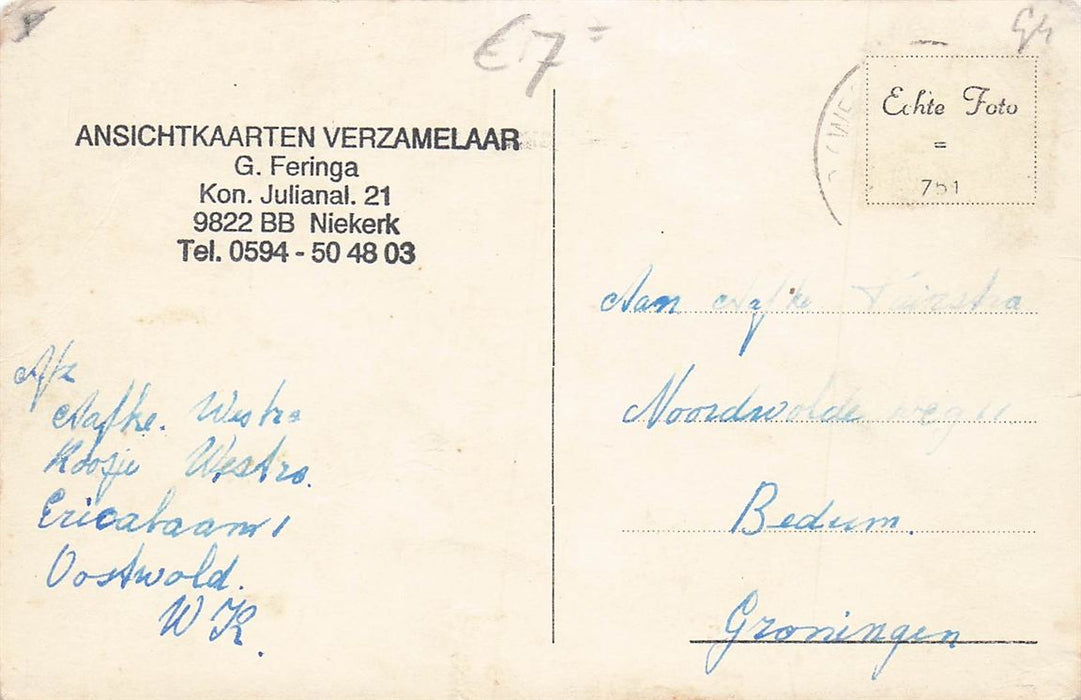 € 7 =
ANSICHTKAARTEN VERZAMELAAR
G. Feringa
Kon. Julianal. 21
9822 BB Niekerk
Tel. 0594 - 50 48 03
Echte Foto
=
751
Aan Aafke
Noordwolde
Bedum.
Groningen
Afz
Aafke. Westra
Roosje Westra.
Ericalaan 1
Oostwold.
W K.